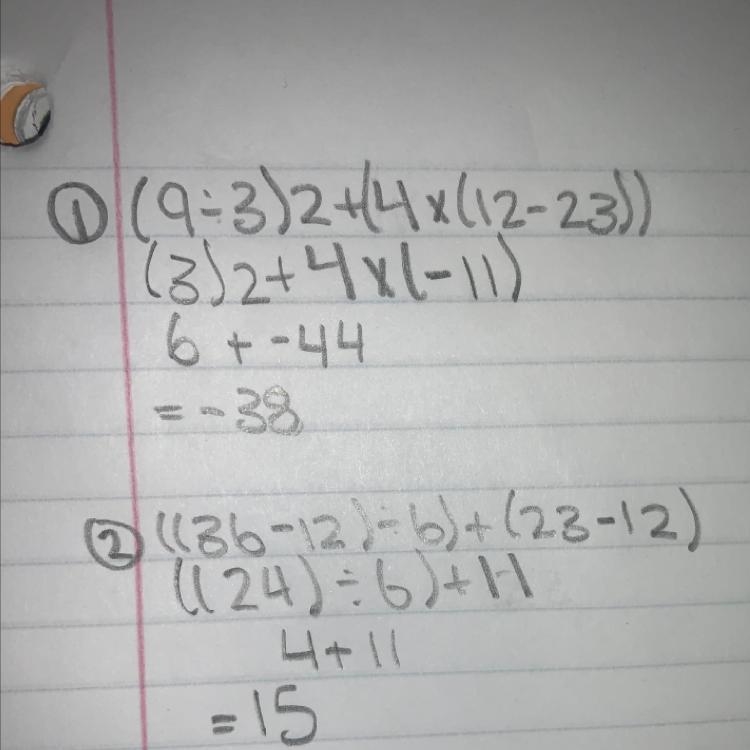 ① (9÷3)2+(4×(12-23))
(3)2+4×(-11)
6+-44
=-38
② ((36-12)÷6)+(23-12)
((24)÷6)+11
4+11
=15